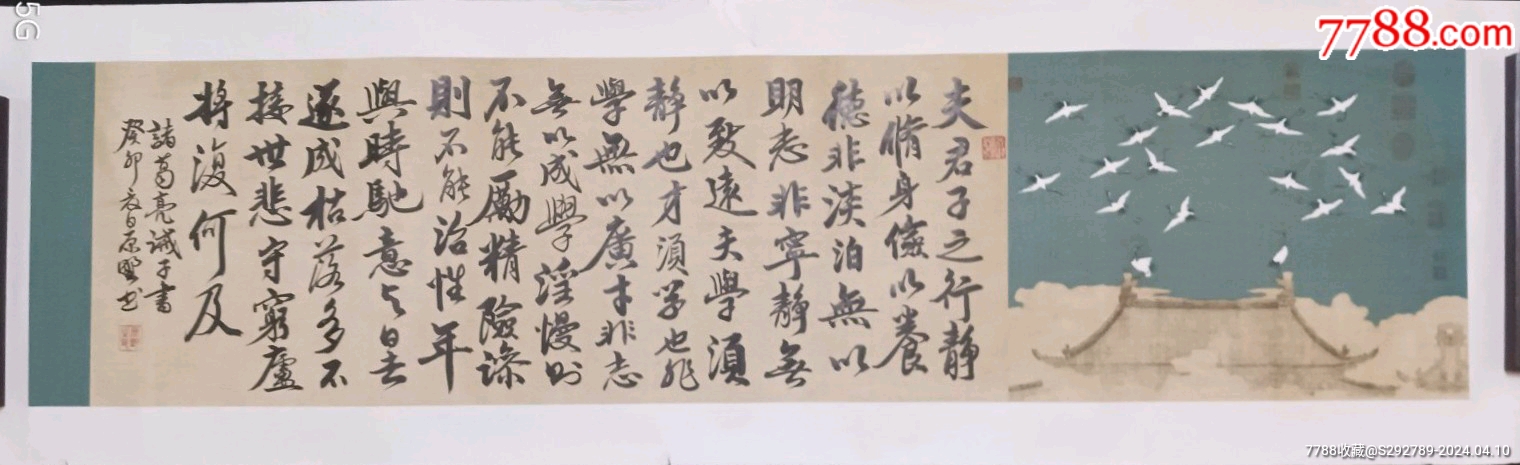 5G
7788.com
夫君子之行静
以脩身儉以養
德非淡泊無以
明志非寧静無
以致遠夫學須
静也才須学也非
學無以廣才非志
無以成學淫慢则
不能勵精險躁
則不能治性年
與時馳意与日去
遂成枯落多不
接世悲守窮廬
將復何及
諸葛亮誡子書
癸卯春日原野书
7788收藏@S292789-2024.04.10